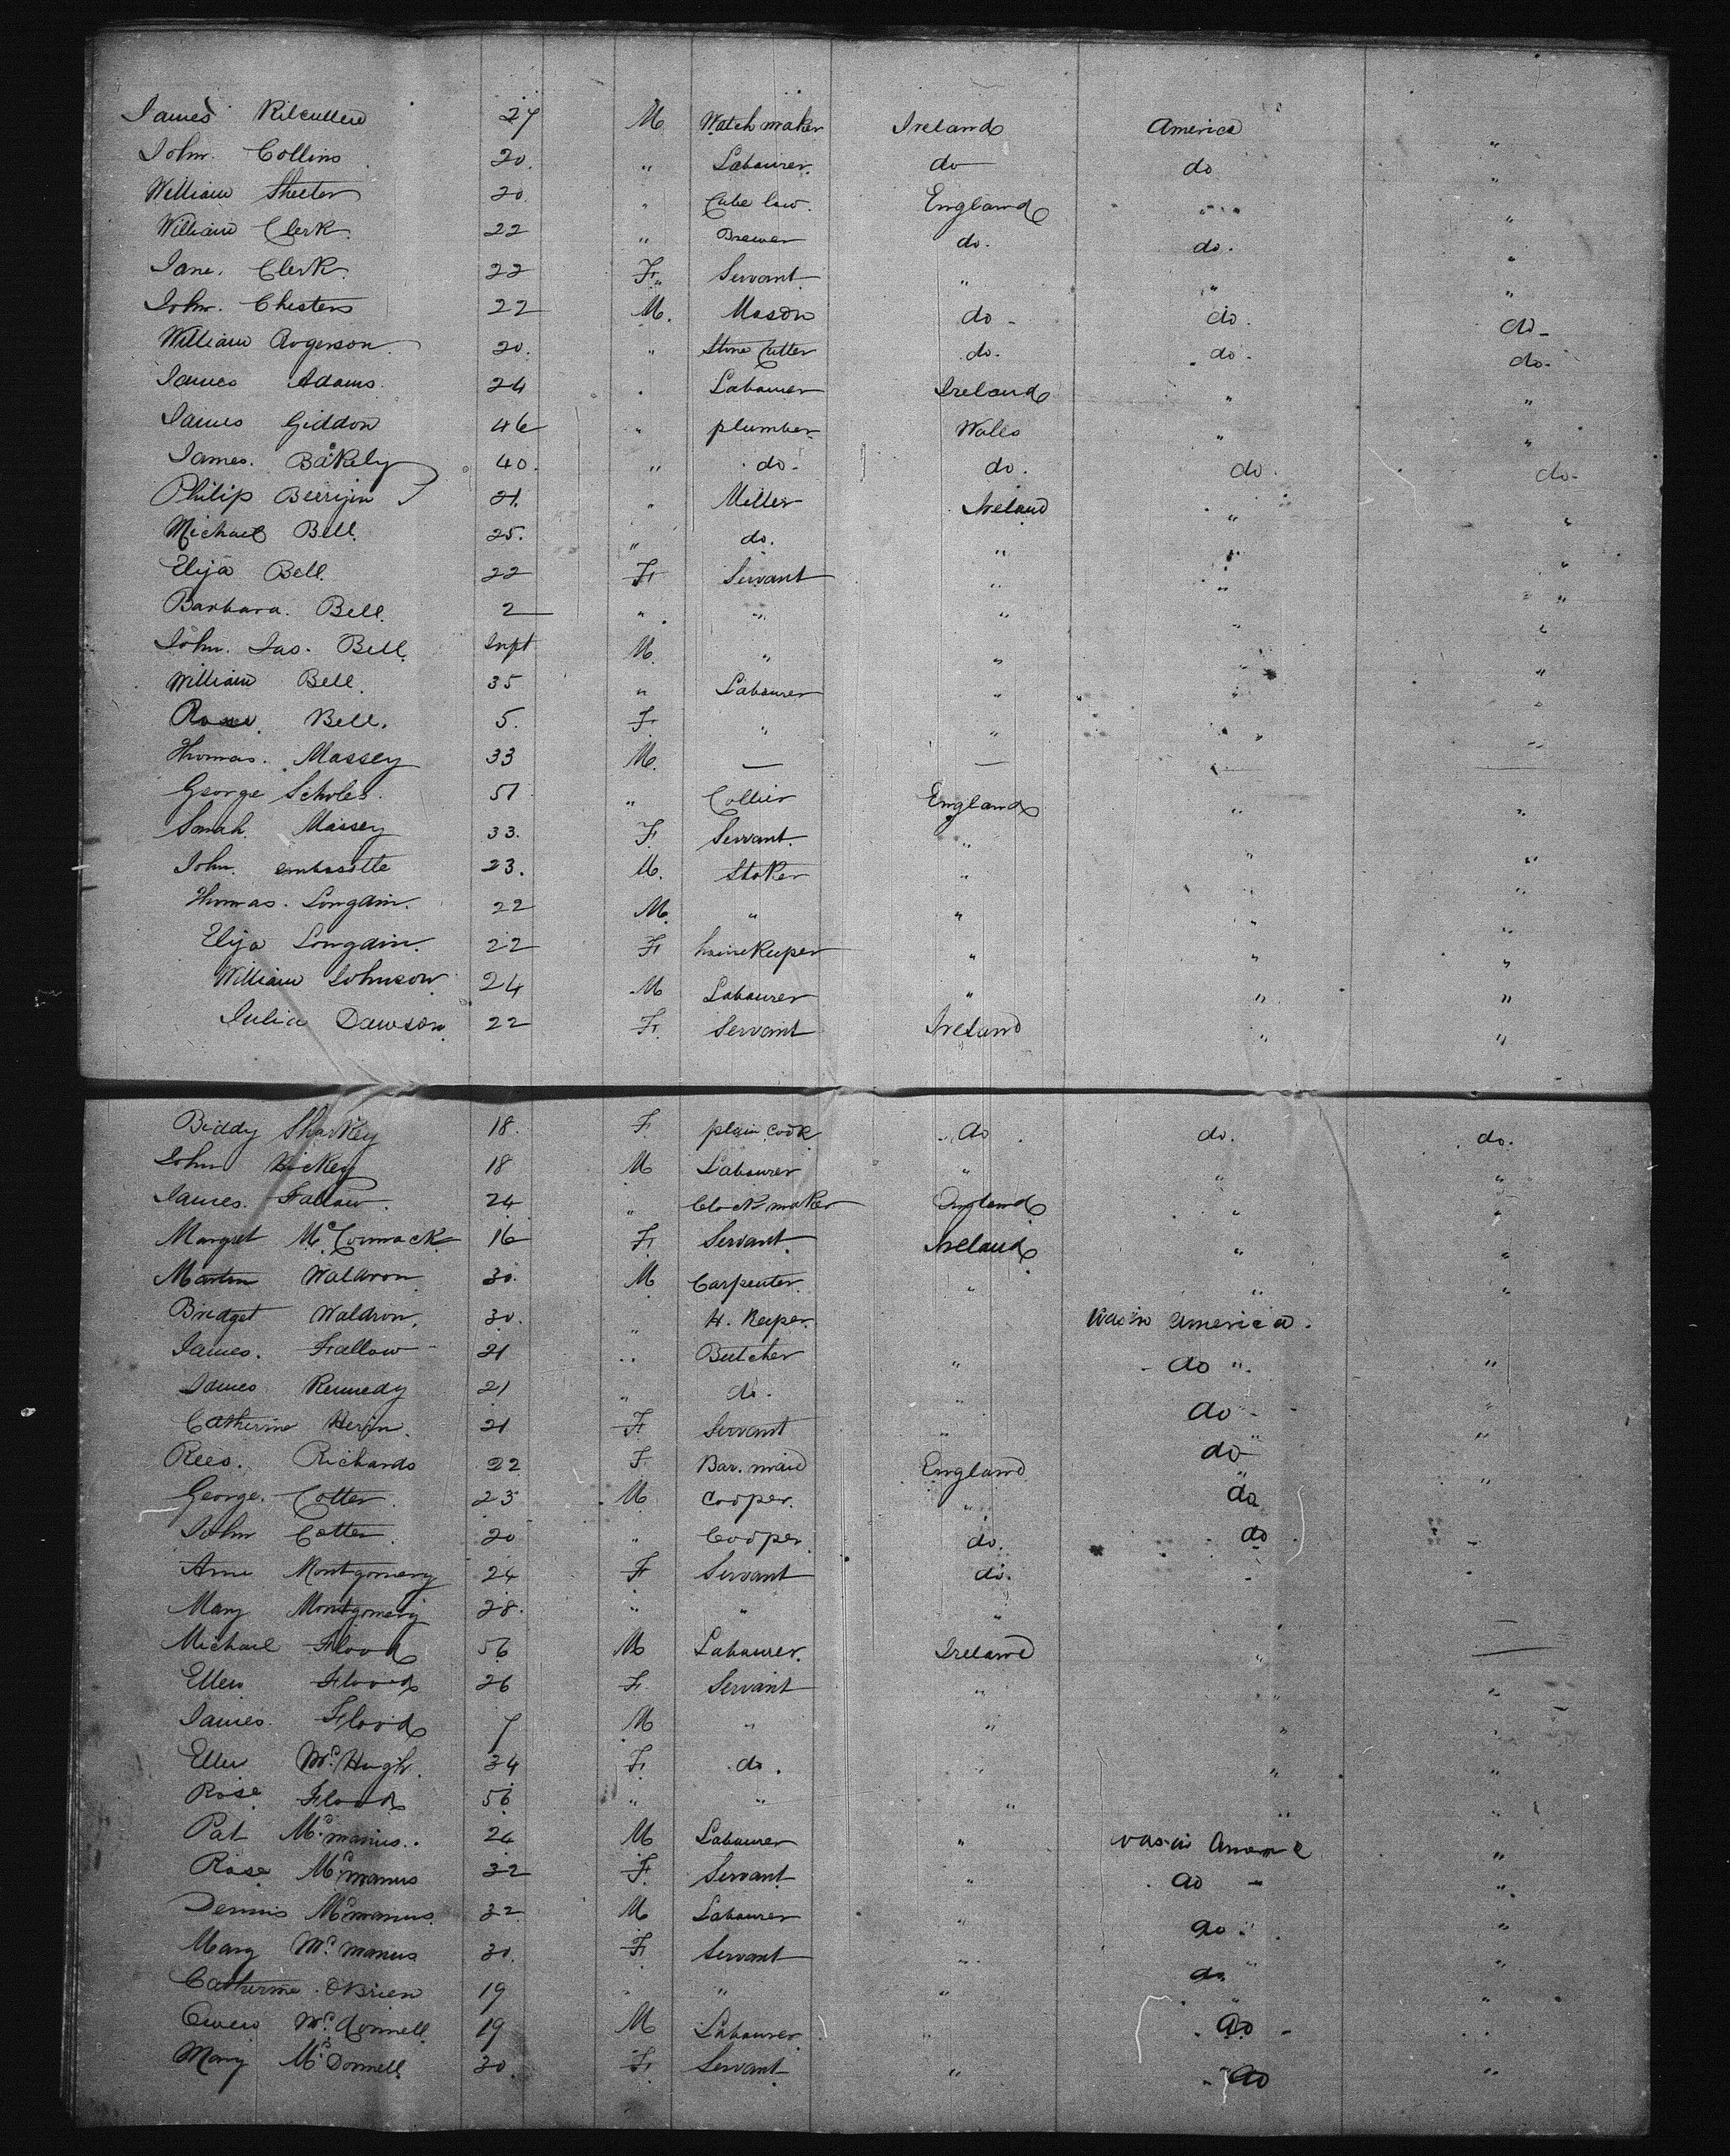 James Kilcullen 27 M Watch maker Ireland America "
John Collins 20 " Labourer do do "
William 20 " England " "
William Clerk 22 " Brewer do. do. "
Jane. Clerk 22 F " Servant " " "
John. Chesters 22 M. Mason do - do. do -
William Rogerson 20. " Stone Cutter do. do - do -
James Adams 24 " Labourer Ireland " "
James Giddon 46 " plumber Wales " "
James. Bakely 40. " do - do. do. do -
Philip 21. " Miller Ireland " "
Michael Bell. 25. " do. " " "
Eliza Bell. 22 F Servant " " "
Barbara. Bell. 2 " " " " "
John. Jas. Bell. Inft M. " " " "
William Bell. 35 " Labourer " " "
Rose Bell. 5. F " " " "
Thomas. Massey 33 M. — — — —
George Scholes. 51 " Collier England " "
Sarah. Massey 33. F. Servant. " " "
John. 23. M. Stoker " " "
Thomas. Longdin. 22 M. " " " "
Eliza Longdin. 22 F housekeeper " " "
William Johnson 24 M Labourer " " "
Julia Dawson. 22 F. Servant Ireland " "
Biddy Sharkey 18. F. plain cook do do. do.
John Hickey 18 M Labourer " " "
James. Fallow. 24 " Clock maker England " "
Margret McCormack 16 F. Servant Ireland " "
Martin Waldron 30. M Carpenter. " " "
Bridget Waldron. 30. " H. Keeper. was in America.
James. Fallow 21 " Butcher " do " "
James Kennedy 21 " do. " do - "
Catherine 21 F. Servant " do " "
Rees. Richards 22 F. Bar. maid England " "
George. Cotter 23 M Cooper. " do
John Cotter. 20 " Cooper. do. do -
Anne Montgomery 24 F Servant do. - -
Mary Montgomery 28. " " " " —
Michael Flood 56 M Labourer. Ireland " —
Ellen Flood 26 F. Servant " " "
James Flood 7 M " " " "
Ellen McHugh. 34 F. do. " " "
Rose Flood 56 " " " " "
Pat McManus.. 24 M Labourer " was in "
Rose McManus 32 F. Servant " do - "
Dennis McManus 32 M Labourer " do " "
Mary McManus 30. F. Servant " do " "
Catherine O'Brien 19 " " " " "
Owen McDonnell 19 M Labourer " do -
Mary McDonnell. 30. F. Servant " do "